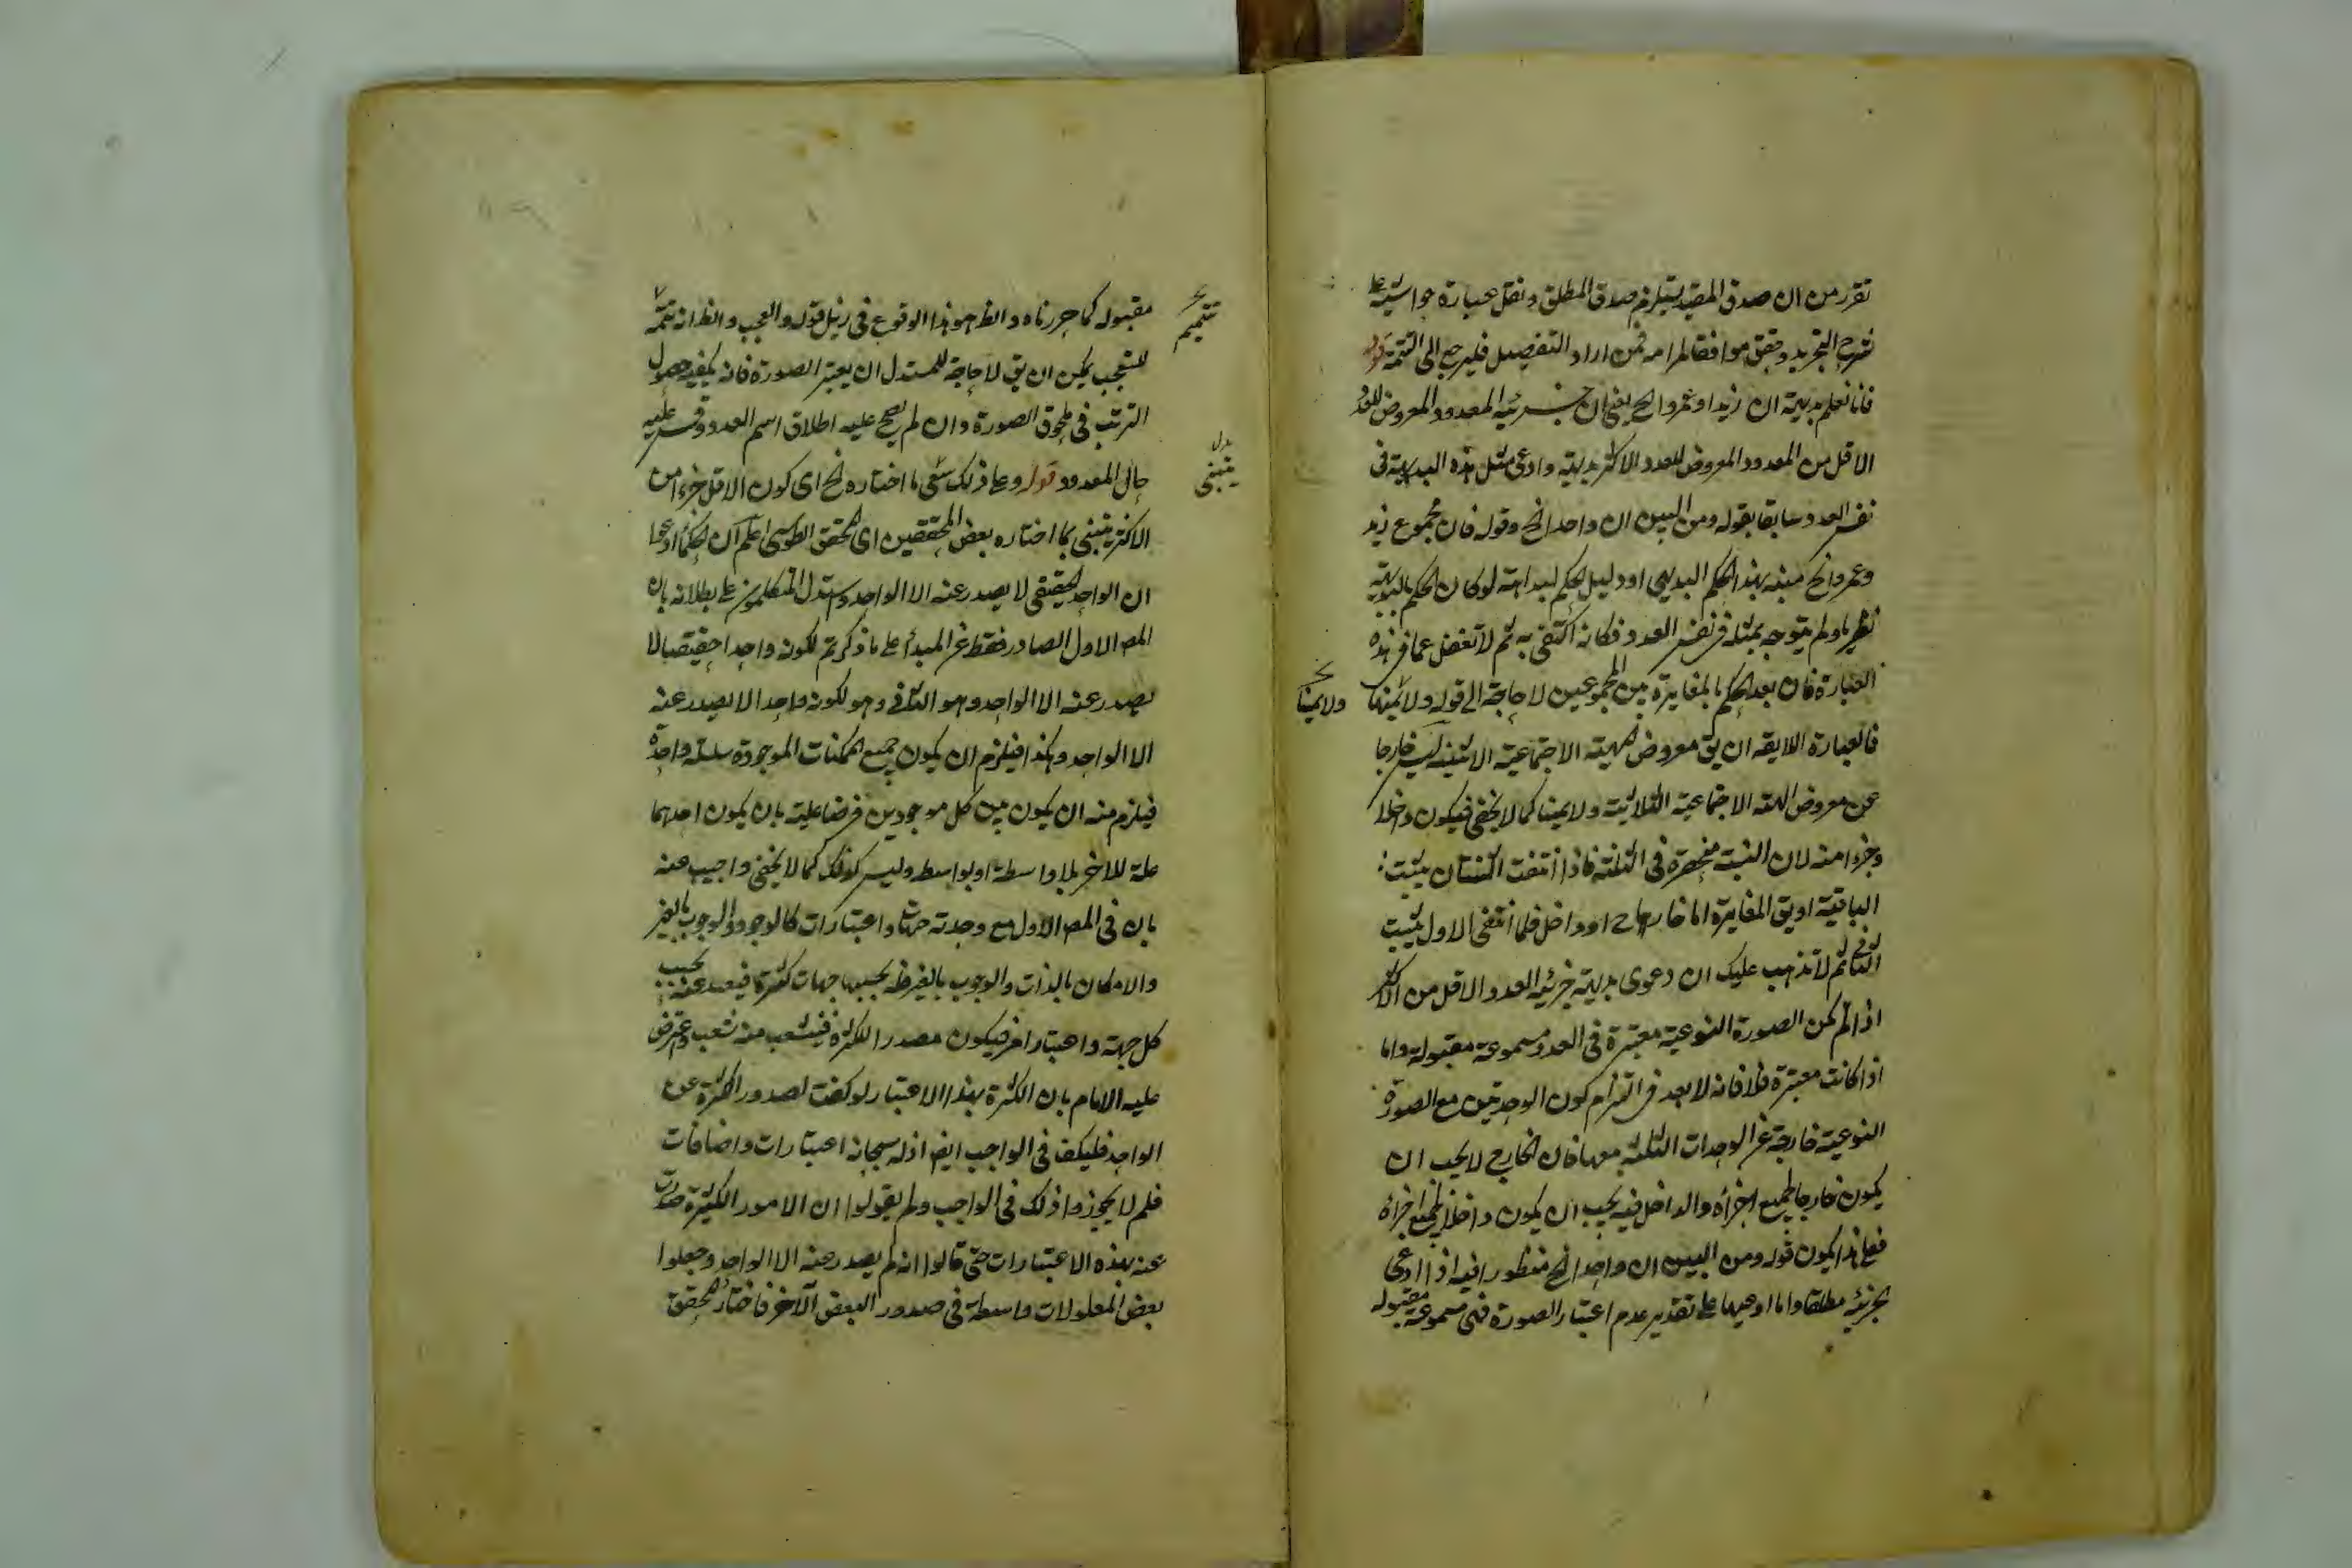 تقرر من ان صدق المقيد يستلزم صدق المطلق ونقل عبارة حواشيه على
شرح التجريد وحقق موافقا لمرامه فمن اراد التفصيل فليرجع الى التتمة قوله
فانا نعلم بديهة ان زيدا وعمروا الخ يعنى ان جزئية المعدود المعروض للعدد
الاقل من المعدود المعروض للعدد الاكثر بديهية وادعى مثل هذه البديهة فى
نفس العدد سابقا بقوله ومن البين ان واحدا الخ وقوله فان مجموع زيد
وعمرو الخ منبه بهذا الحكم البديهى او دليل لحكم لبداهة لو كان الحكم بالبديهة
نظريا ولم يتوجه بمثله فى نفس العدد فكانه اكتفى به ثم لا تغفل عما فى هذه
العبارة فان بعد الحكم بالمغايرة بين المجموعين لا حاجة الى قوله ولا
ولا
فالعبارة اللايقه ان يق معروض الهيئة الاجتماعية الاثنينيه ليس خارجا
عن معروض الهيئة الاجتماعية الثلاثية ولا كما لا يخفى فيكون داخلا
وجزءا منه لان النسبة منحصرة فى الثلثة فاذا انتفت الثنتان يثبت
الباقية او يق المغايرة اما خارج او داخل فلما انتفى الاول يثبت
الثانى ثم لا تذهب عليك ان دعوى بديهة جزئية العدد الاقل من الاكثر
اذا لم يكن الصورة النوعية معتبرة فى العدد مسموعة مقبولة واما
اذا كانت معتبرة فلا فانه لا بعد فى التزام كون الوحدتين مع الصورة
النوعية خارجة عن الوحدات الثلثة معها فان الخارج لا يجب ان
يكون خارجا لجميع اجزائه والداخل فيه يجب ان يكون داخلا بجميع اجزائه
فعلى هذا يكون قوله ومن البين ان واحدا الخ منظورا فيه اذا ادعى
بجزئية مطلقا واما ادعيها على تقدير عدم اعتبار الصورة فهى مسموعة مقبولة
مقبوله كما حررناه والظ هو هذا الوقوع فى ذيل قوله والعجب والظ انه تتمة
تتميم
للتعجب يمكن ان يق لا حاجة للمستدل ان يعتبر الصورة فانه يكفيه حصول
الترتب فى لحوق الصورة وان لم يصح عليه اطلاق اسم العدد وقس عليه
بدل
ينبغى
حال المعدود قوله وعلى ذلك ما اختاره الخ اى كون الاقل جزءا من
الاكثر ينبنى بما اختاره بعض المحققين اى المحقق الطوسى اعلم ان الحكماء ادعوا
ان الواحد الحقيقى لا يصدر عنه الا الواحد واستدل المتكلمون على بطلانه بان
المع الاول الصادر فقط عن المبدأ على ما ذكرتم لكونه واحدا حقيقيا لا
يصدر عنه الا الواحد وهو الثانى وهو لكونه واحدا لا يصدر عنه
الا الواحد وهكذا فيلزم ان يكون جميع الممكنات الموجودة سلسلة واحدة
فيلزم منه ان يكون بين كل موجودين فرضا علية بان يكون احدهما
علة للاخر بلا واسطة او بواسطه وليس كذلك كما لا يخفى واجيب عنه
بان فى المع الاول مع وحدته جهات واعتبارات كالوجود والوجوب بالغير
والامكان بالذات والوجوب بالغير فله بحسبها جهات كثيرة فيصدر عنه بحسب
كل جهة واعتبار امر فيكون مصدرا للكثرة فينشعب منه شعب واعترض
عليه الامام بان الكثرة بهذا الاعتبار لو كفت لصدور الكثرة عن
الواحد فليكف فى الواجب ايض اذ له سبحانه اعتبارات واضافات
فلم لا يجوزوا ذلك فى الواجب ولم يقولوا ان الامور الكثيرة صدرت
عنه بهذه الاعتبارات حتى قالوا انه لم يصدر عنه الا الواحد وجعلوا
بعض المعلولات واسطة فى صدور البعض الآخر فاختار المحقق